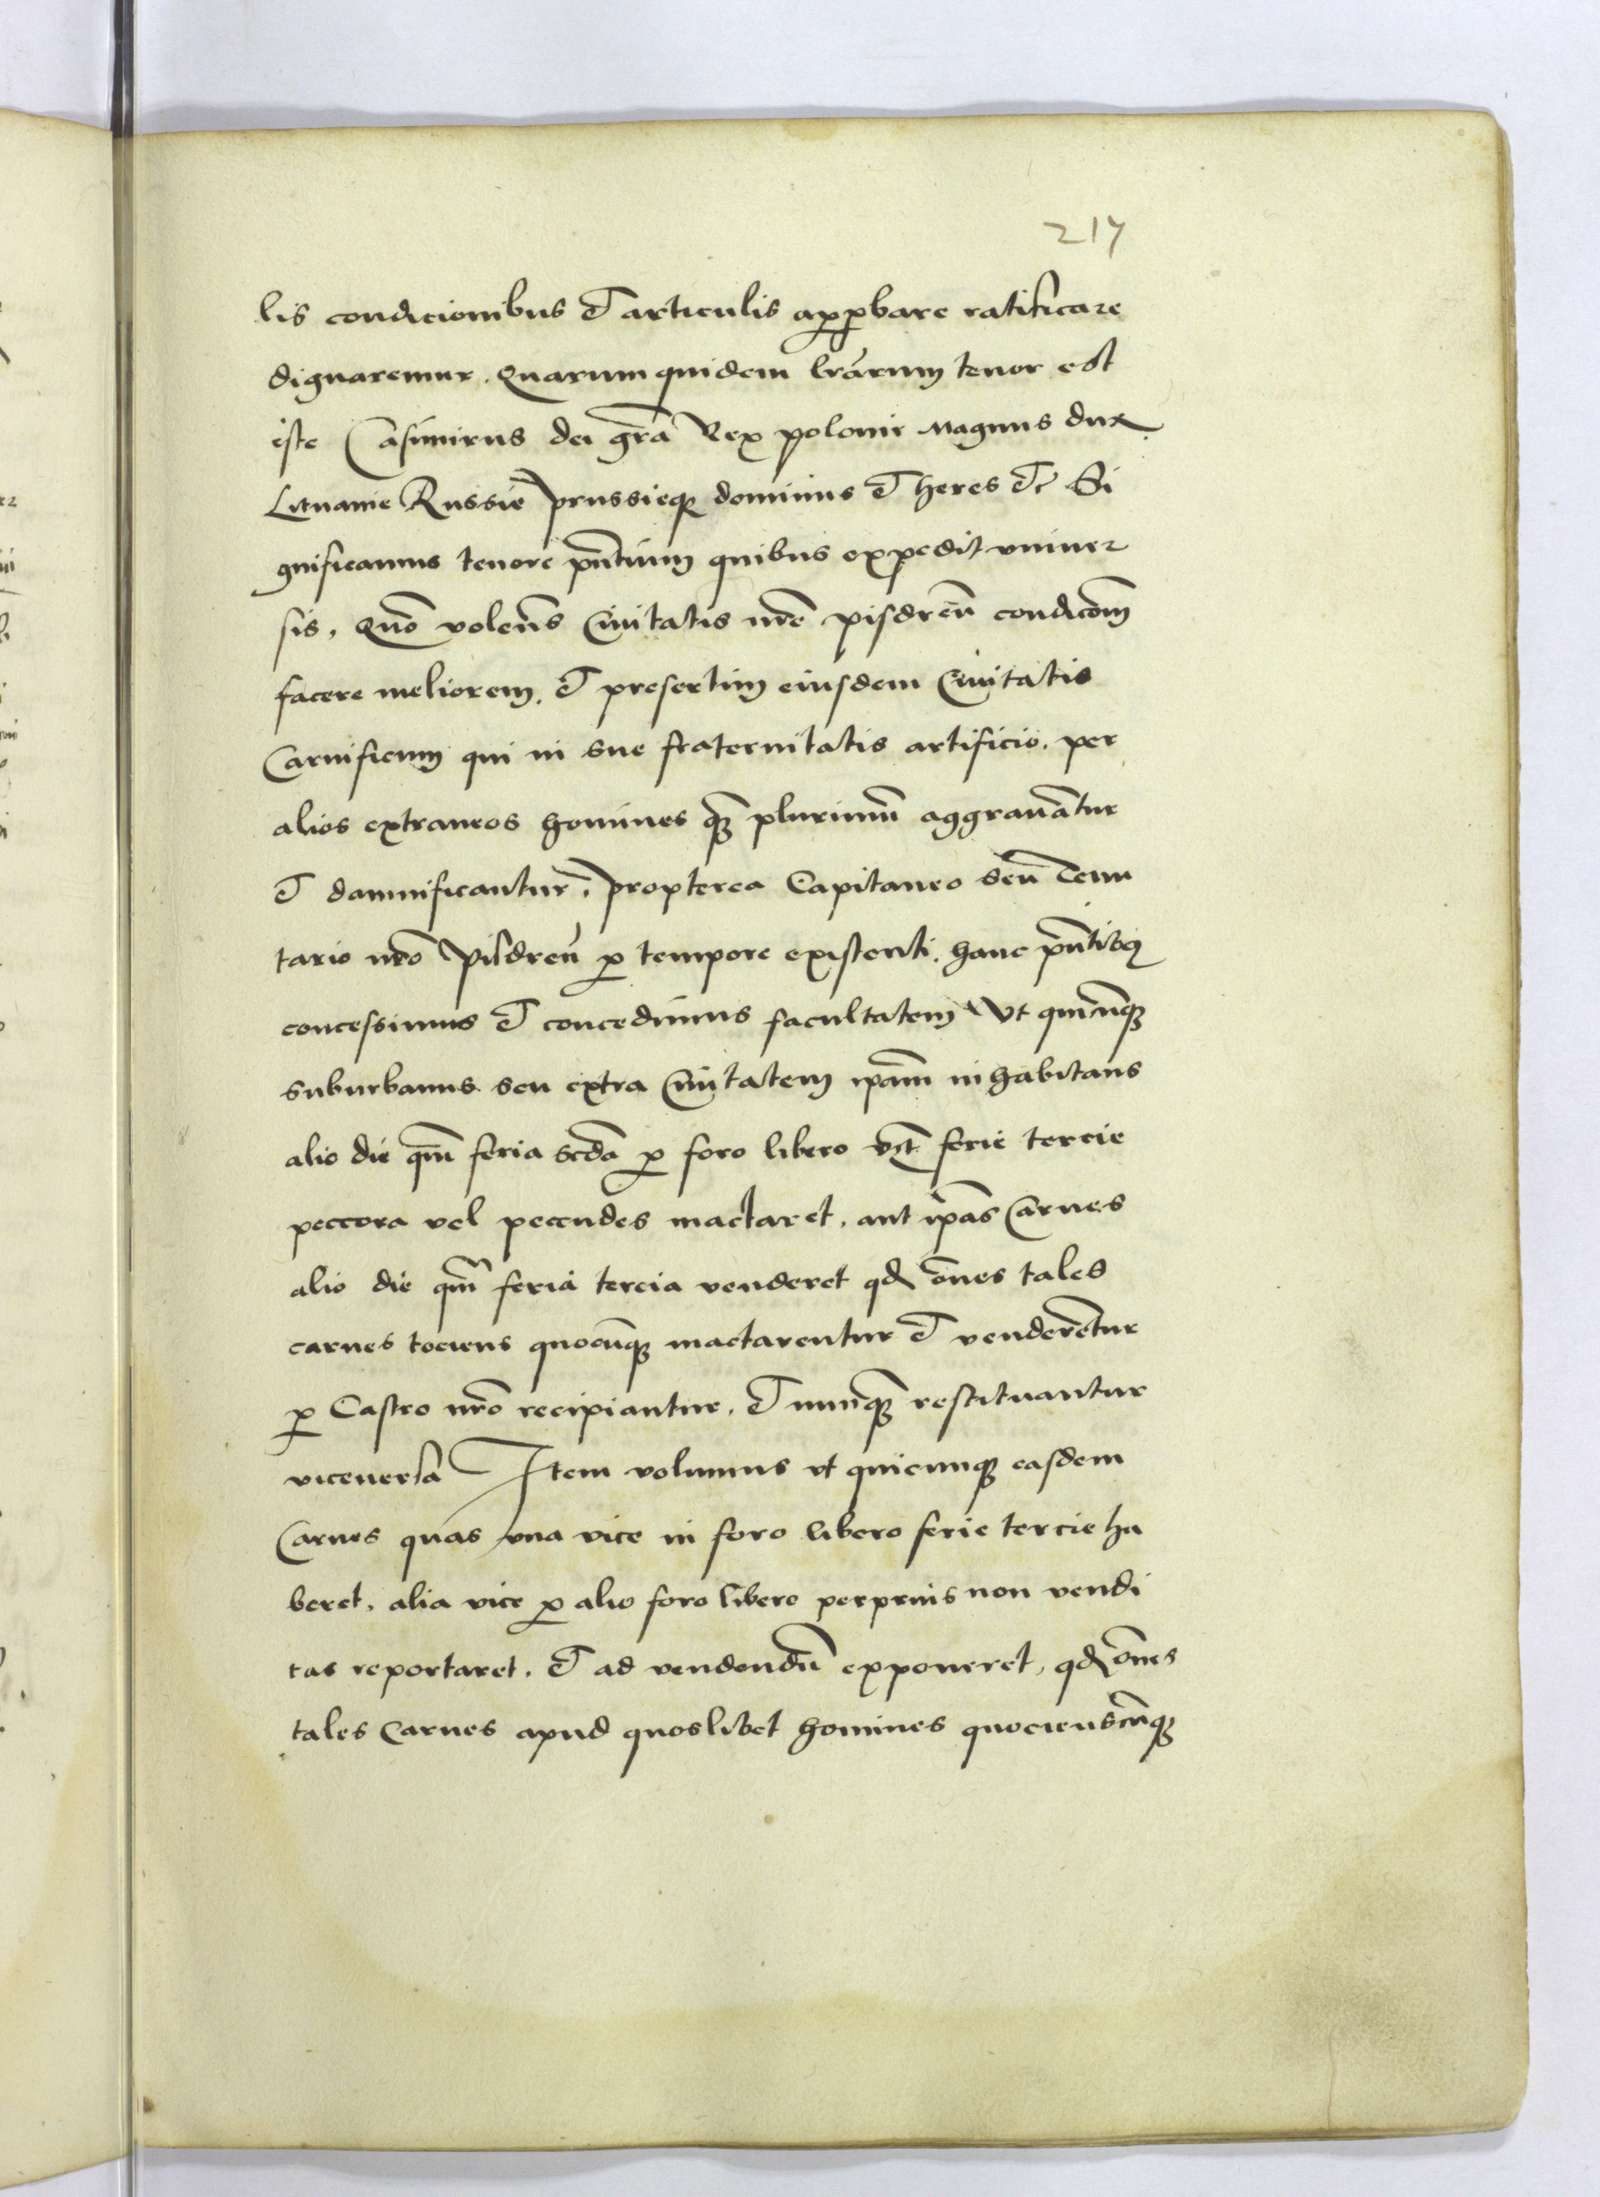 217
lis condicionibus et articulis app̱bare ratificare
dignaremur. Quarum quidem lr̃arum tenor est
iste Casimirus dei gr̃a Rex polonie Magnus dux
Lituanie Russie prussieqꝫ dominus et heres etc̃ Si
gnificamus tenore pñtium quibus expedit vniuer
sis, Quõ volen̄s Ciuitatis nr̃e pisdreñ condicõm
facere meliorem, et presertim eiusdem Ciuitatis
Carnificum qui in sue fraternitatis artificio, per
alios extraneos homines qꝫ̃ plurimũ aggrauãtur
et damnificantur, propterea Capitaneo seũ Tenu
tario nr̃o Pisdreñ ꝓ tempore existenti, hanc pñtibꝫ
concessimus et concedimus facultatem Vt quicũqꝫ
suburbanus seu extra Ciuitatem ip̃am inhabitans
alio die qm̃ feria scd̃a ꝓ foro libero vꝫt ferie tercie
peccora vel pecudes mactaret, aut ip̃as Carnes
alio die qm̃ feria tercia venderet qđ om̃es tales
carnes tociens quocũqꝫ mactarentur et venderẽtur
ꝓ Castro nr̃o recipiantur, et nunqꝫ̃ restituantur
viceuersa Item volumus vt quicunqꝫ easdem
Carnes quas vna vice in foro libero ferie tercie ha
beret, alia vice ꝓ alio foro libero perprius non vendi
tas reportaret, et ad vendendũ exponeret, qđ om̃es
tales Carnes apud quoslibet homines quocienscũqꝫ